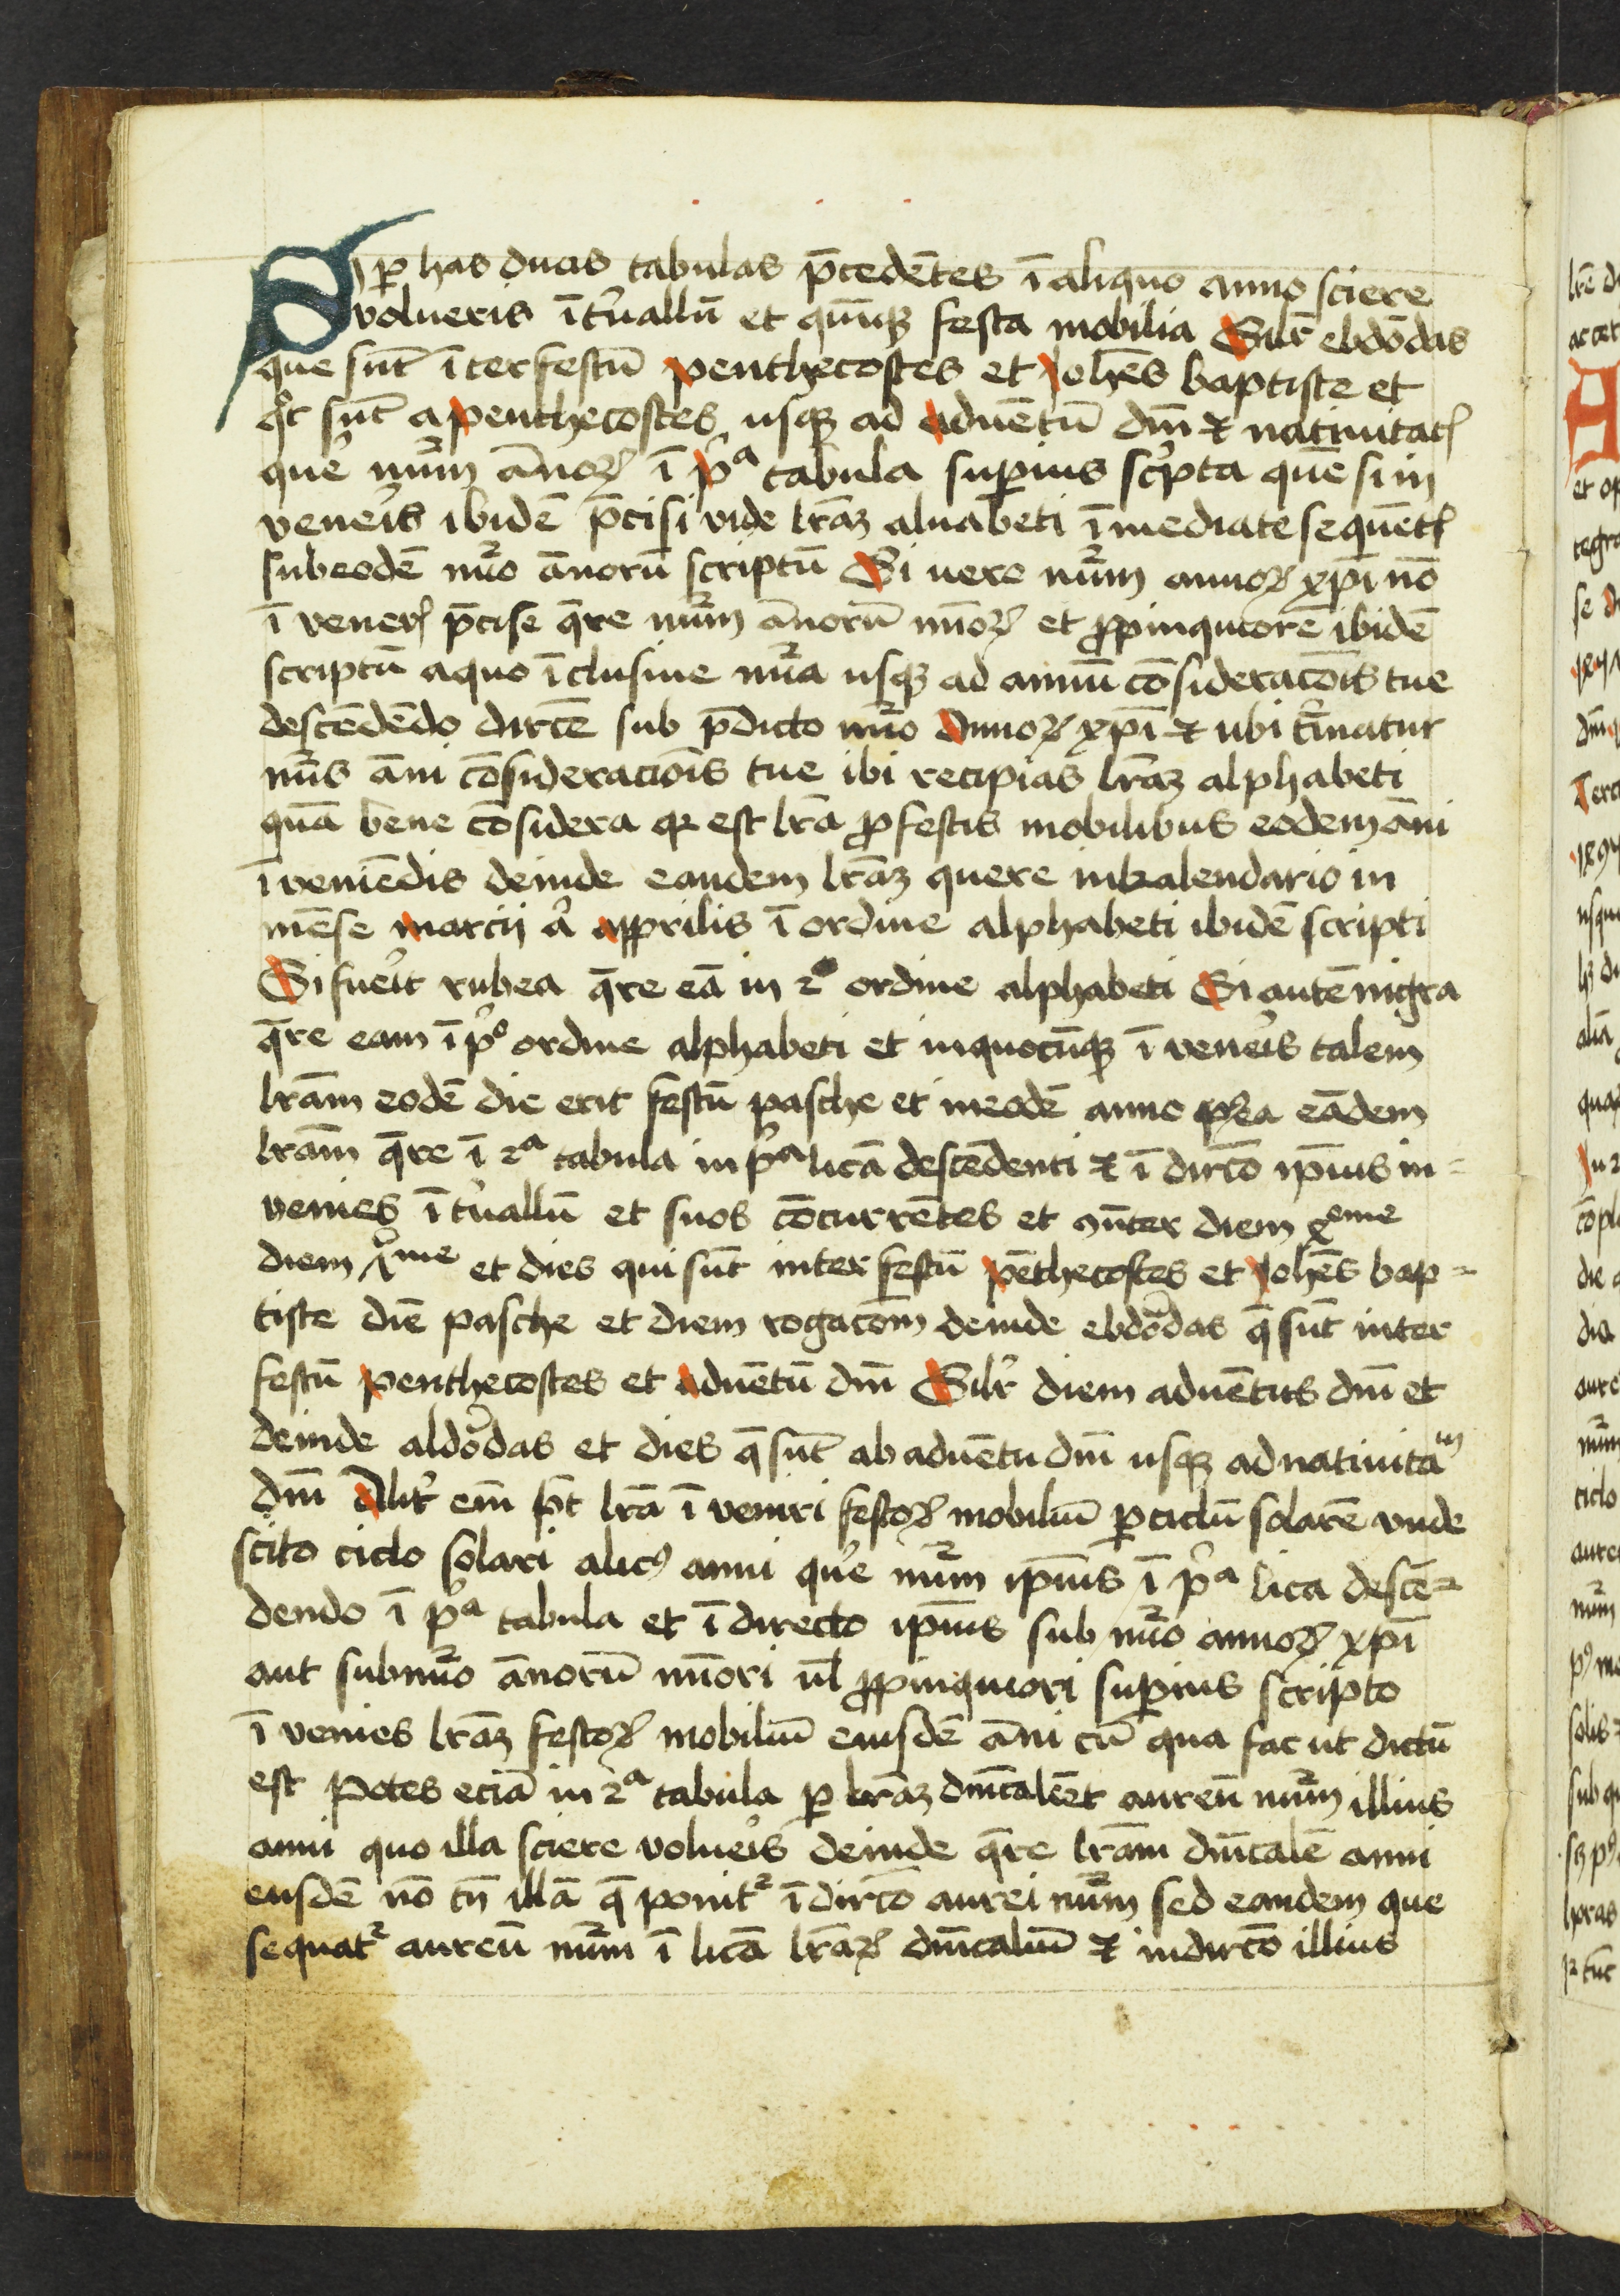 Si ꝑ has duas tabulas p̄cedētes ī aliquo anno sciere
volueris ītͥuallū et quīqꝫ festa mobilia Silr̄ ebdōdas
que sūt īter festū penthecostes et Johēs baptiste et
qͦt sūt a penthecostes usqꝫ ad aduētū dn̄i ⁊ natiuitatꝭ
quere nūm̄ ānoꝝ ī pͥᵃ tabula suꝑius scͥpta quē si in
veneris ibidē p̄cisi vide lr̄aꝫ aluabeti īmediate sequētꝭ
sub eodē nūo ānorū scriptū Si uero nūm̄ annoꝝ xp̄i nō
ī venerꝭ p̄cise q̄re nūm̄ ānorū mīoꝝ et ꝓpinquiorē ibidē
scriptū a quo īclusiue nūa usqꝫ ad annū cōsideracōis tue
descēdēdo dirc̄e sub p̄dicto nūo Annoꝝ xp̄i ⁊ ubi tͥminatur
nūs āni cōsideracionis tue ibi recipias lr̄aꝫ alphabeti
quā bene cōsidera qꝛ est lr̄a ꝓ festis mobilibus eodem āni
īveniēdis deinde eandem lr̄aꝫ quere in kalendario in
mēse marcij aͥ apprilis ī ordine alphabeti ibidē scripti
Si fueͥit rubea q̄re eā in 2º ordine alphabeti Si autē nigra
q̄re eam ī pͥº ordine alphabeti et in quocūqꝫ ī veneͥis talem
lr̄am eodē die erit festū pasche et in eodē anno pꝰea eādem
lr̄am q̄re ī 2ᵃ tabula in pͥᵃ licā descēdenti ⁊ ī dirc̄o ip̄ius in =
venies ītͥuallū et suos cōcurrētes et diem xᵉᵐᵉ
diem xᵐᵉ et dies qui sūt inter festū pēthecostes et Johēs bap =
tiste diē pasche et diem rogacōm deinde ebdōdas q̄ sūt inter
festū penthecostes et aduētū dn̄i Silr̄ diem aduētus dn̄i et
deinde aldōdas et dies q̄ sūt ab aduētu dn̄i usqꝫ ad natiuitaᵐ
dn̄i Alitͥ em̄ pt̄ lr̄a ī veniri festoꝝ mobiliū ꝑ ciclū solarē vnde
scito ciclo solari alicꝰ anni quͥe nūm̄ ip̄ius ī pͥᵃ lica descē =
dendo ī pͥᵃ tabula et ī directo ip̄ius sub nūo annoꝝ xp̄i
aut sub nūo ānorū mīori ul̄ ꝓpinquiori suꝑius scripto
ī venies lr̄aꝫ festoꝝ mobiliū eiusdē āni cū qua fac ut dictū
est Potes eciā in 2ᵃ tabula ꝑ lr̄aꝫ dn̄icalē et aureū nūm̄ illius
anni quo illa sciere volueͥis deinde q̄re lr̄am dn̄icalē anni
eiusdē nō tn̄ illā q̄ ponitᷣ ī dirc̄o aurei nūm̄ sed eandem que
sequatᷣ aureū nūm̄ ī licā lr̄aꝝ dn̄icaliū ⁊ in dirc̄o illius